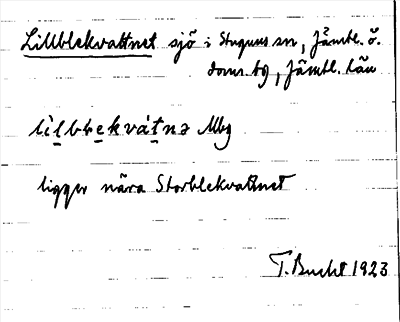 Lillblekvattnet sjö i Stuguns sn, Jämtl. ö.
doms. tg, Jämtl. län
lìlbblekvàtnə Mbg
ligger nära Storblekvattnet
T. Bucht 1923